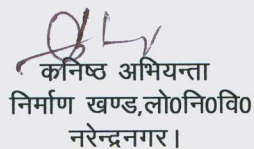 कनिष्ठ अभियन्ता
निर्माण खण्ड,लो0नि0वि0
नरेन्द्रनगर।